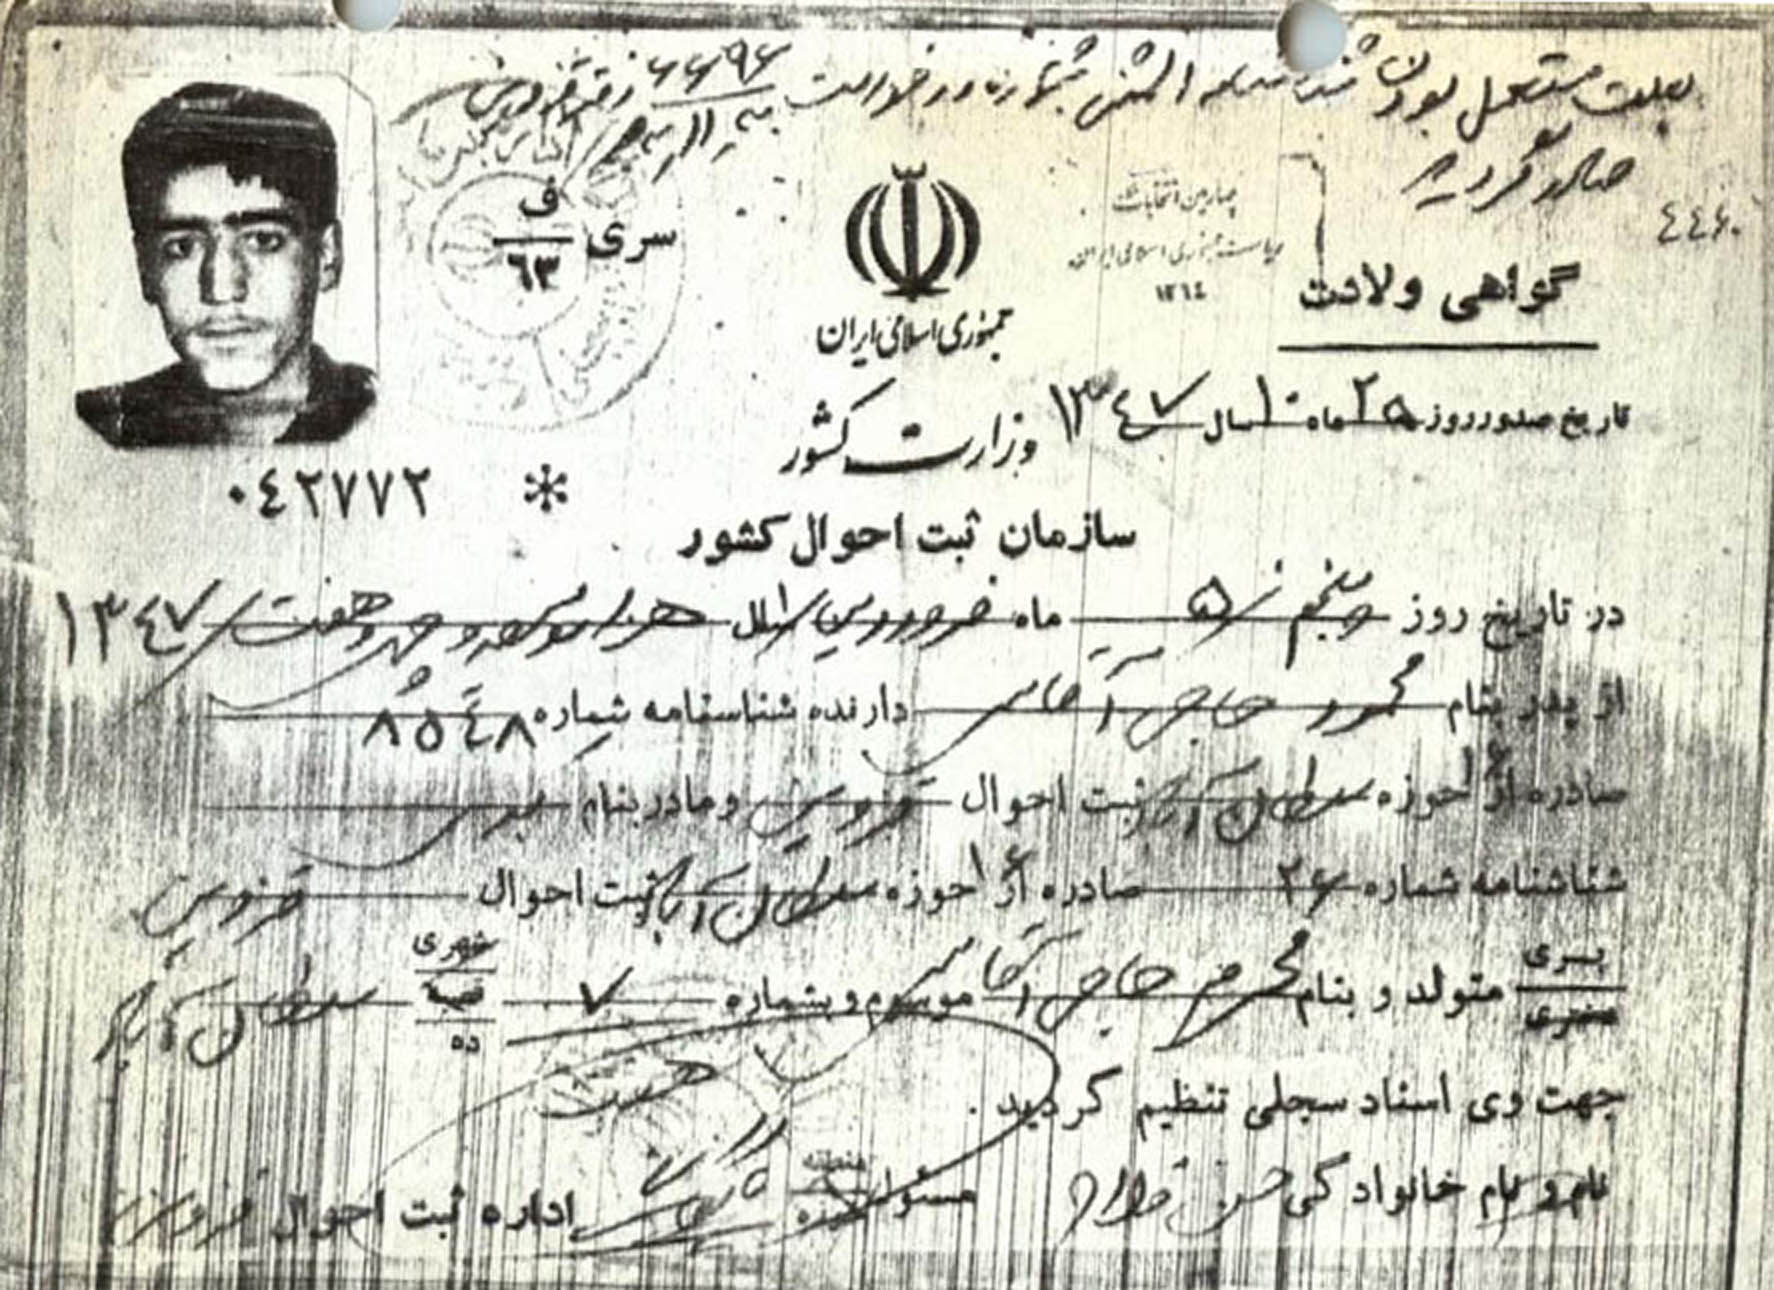 بعلت مستعمل بودن شناسنامه المثنی بشماره درخواست ۶۶۹۶
صادر گردید
۴۴۶۰
سری ف ۶۳
جمهوری اسلامی ایران
چهارمین انتخابات
ریاست جمهوری اسلامی ایران
۱۳۶۴
گواهی ولادت
تاریخ صدور روز ۲۵ ماه ۱۰ سال ۱۳۴۷
وزارت کشور
۰۴۲۷۷۲ *
سازمان ثبت احوال کشور
در تاریخ روز پنجم ۵ ماه فروردین سال هزار و سیصد و چهل و هفت ۱۳۴۷
از پدر بنام محمود حاجی آقاسی دارنده شناسنامه شماره ۸۵۴۸
صادره از حوزه ۱ سلطان آباد ثبت احوال قزوین و مادر بنام
شناسنامه شماره ۲۶ صادره از حوزه ۱۶ سلطان آباد ثبت احوال قزوین
پسری دختری متولد و بنام محرم حاجی آقاسی موسوم و بشماره ۷ شهری ده سلطان آباد
هفت
جهت وی اسناد سجلی تنظیم گردید .
نام و نام خانوادگی حسن مسئول حوزه اداره ثبت احوال قزوین